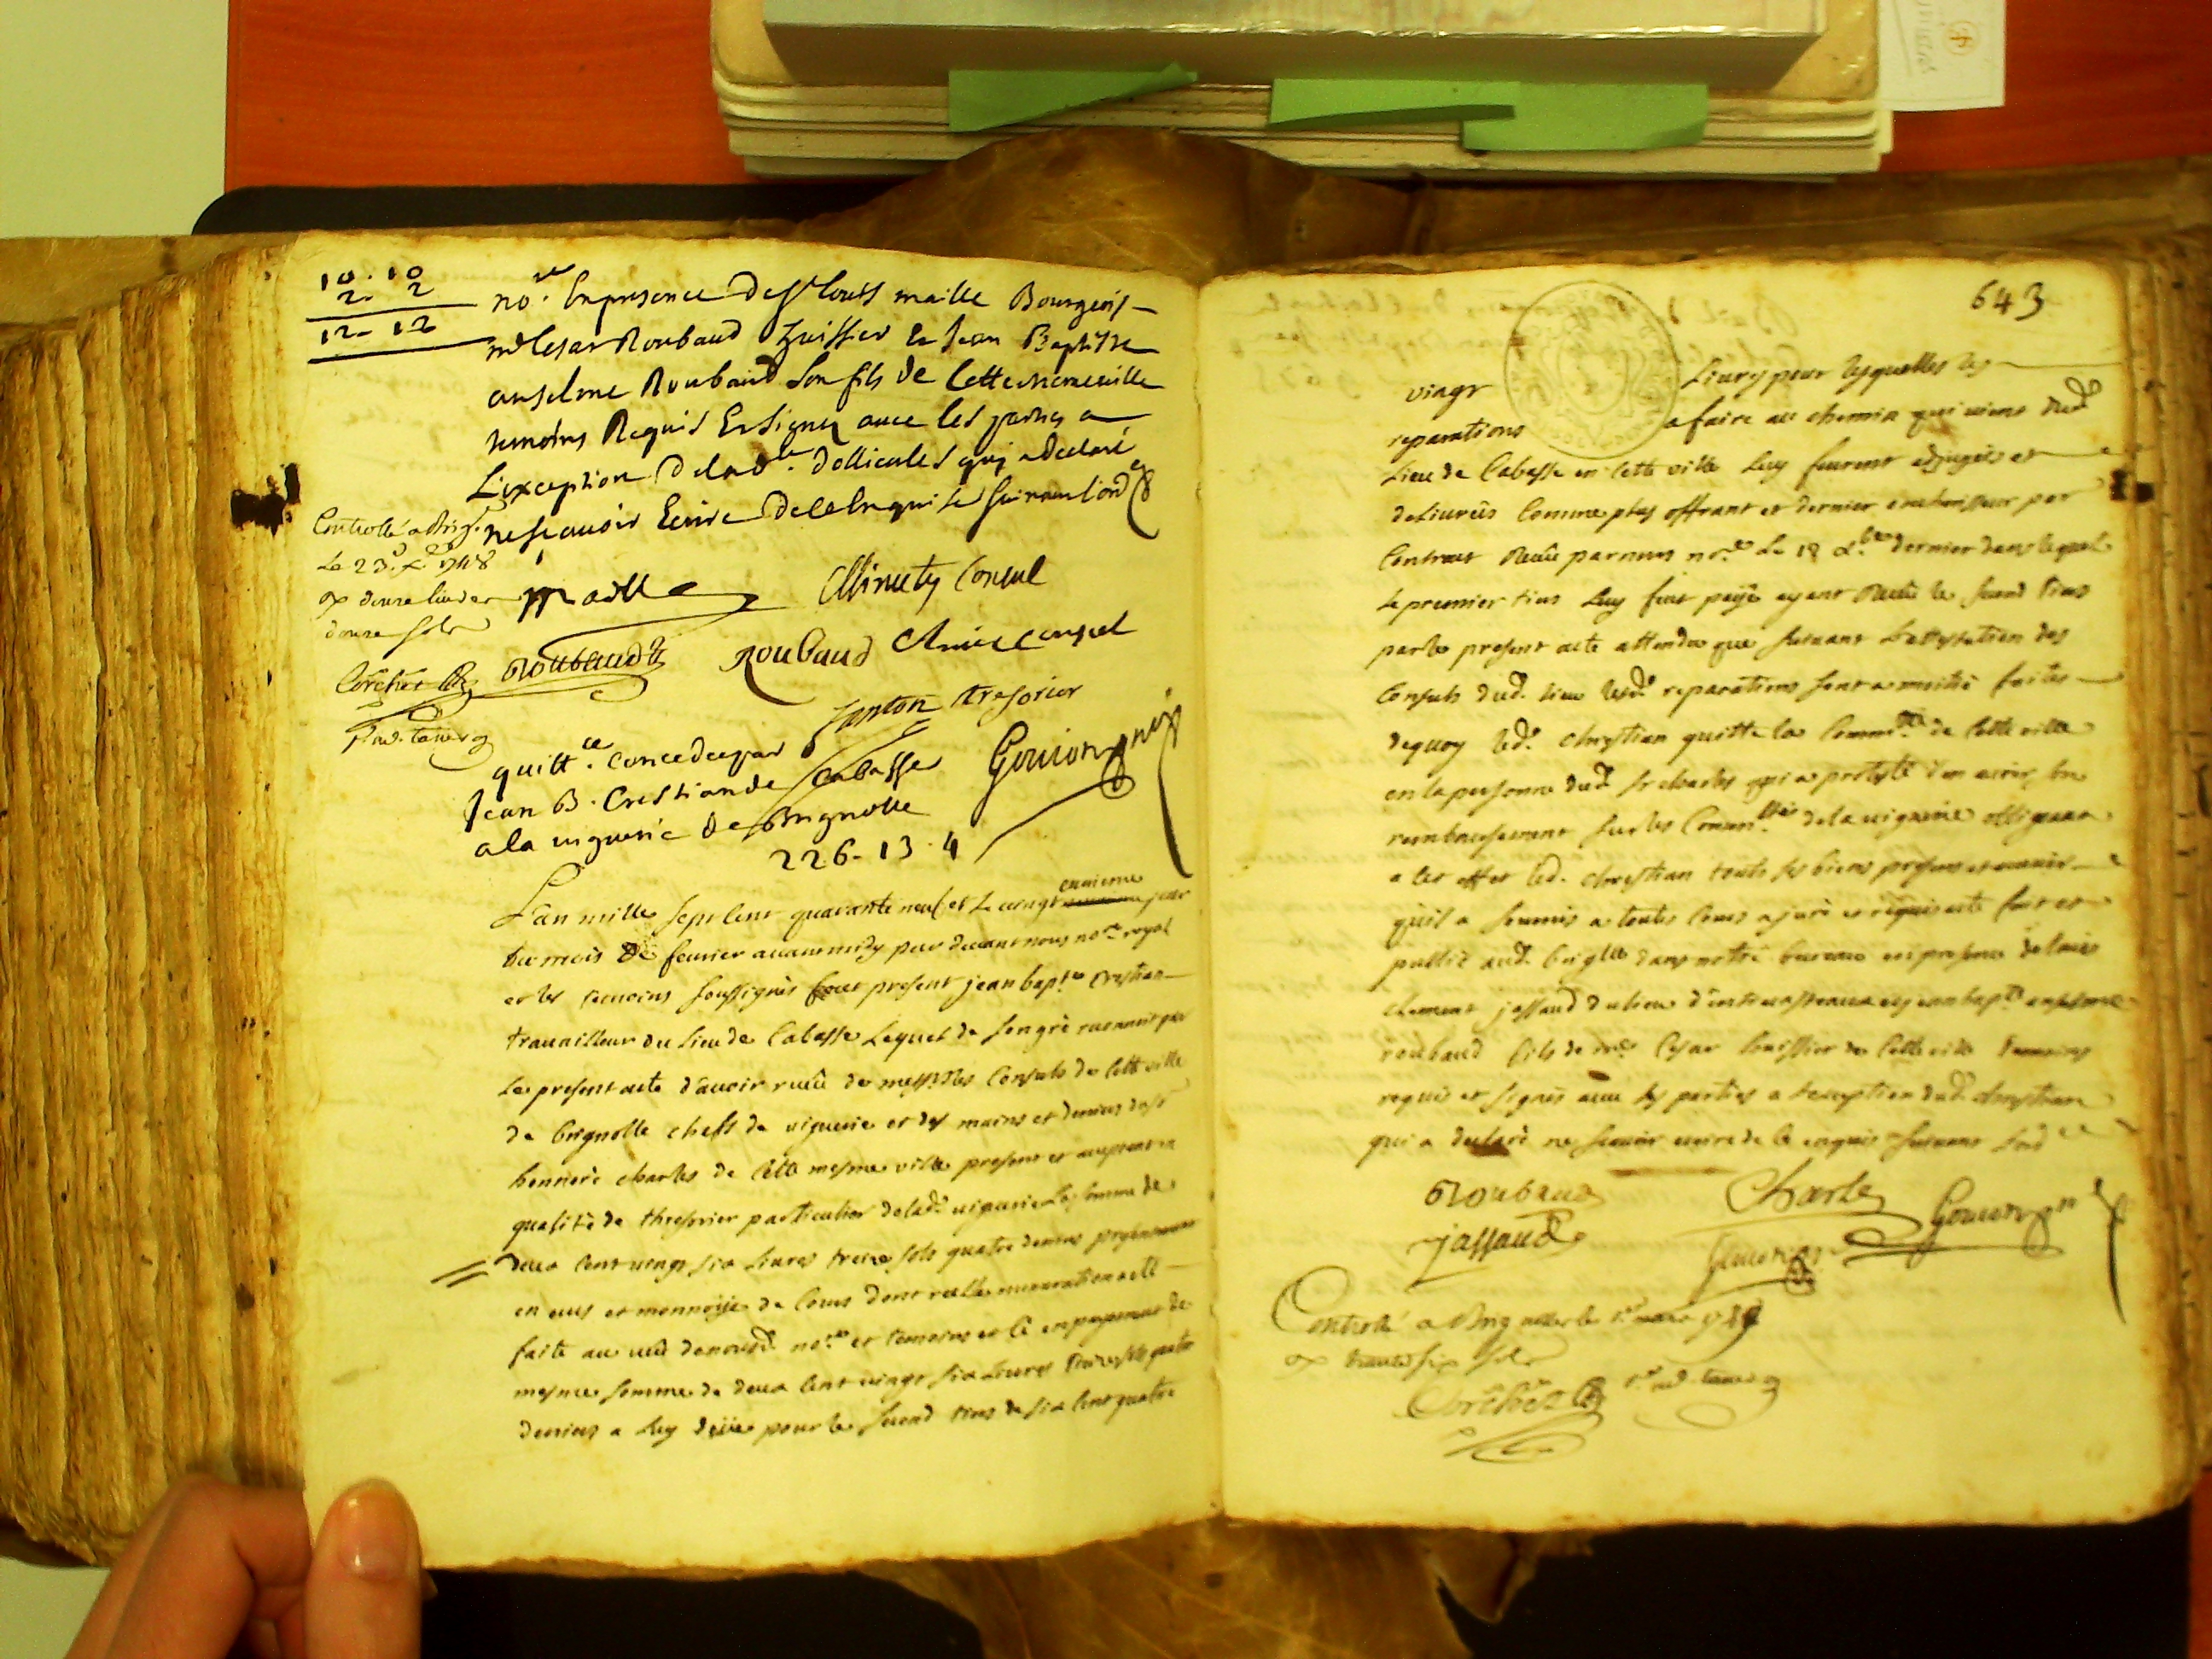 10. 10
2. 2
12. 12
no.re En presence de Sr Louis maille Bourgeois
me Cesar Roubaud huissier Et Jean Baptiste
anselme Roubaud son fils de Cette meme ville
temoins Requis Et Signez avec les parties a
L'exception de lad.
ne scavoir Ecrire de ce Enquise suivant l'ord.ce
Controllé a
Le 23
douze livres
douze sols
maille
Minuty Consul
Roubaud
Roubaud
Consul
tresorier
quitt.ce concedee par
Jean B. Crestian de Cabasse
a la viguerie de Brignolle
226. 13. 4
Gouion
L'an mille sept cent quarante neuf et le vingt jour
du mois de fevrier avant midy par devant nous no.re royal
et les temoins soussignés fut present jean bap.te crestian
travailleur du Lieu de Cabasse Lequel de son gré par
Le present acte d'avoir reçu de mess.rs les Consuls de cette ville
de brignolle chefs de viguerie et des mains et deniers de sr
honnoré charles de Cette mesme ville present et acceptant en
qualité de thresorier particulier de lad.e viguerie La somme de
deux cent vingt six Livres treize sols quatre deniers presentement
en ecus et monnoye de Cours dont reelle numeration a eté
faite au veu de nousd. no.re et temoins et ce en payement de
mesme somme de deux cent vingt six Livres treize sols quatre
deniers a Luy deüe pour le second tiers de six cent quatre
643
vingt Livres pour lesquelles les
reparations a faire au chemin qui vient dud.
Lieu de Cabasse en cette ville Luy feurent adjugées et
delivrées Comme plus offrant et dernier encherisseur par
Contract Receu par nous no.re Le 18 dernier dans lequel
Le premier tiers Luy feut payé ayant Receu le second tiers
par le present acte attendu que suivant L'attestation des
Consuls dud. Lieu lesd. reparations sont a moitié faites
de quoy led. christian quitte la Comm.té de Cette ville
en la personne dud. sr charles qui a protesté d'en avoir son
remboursement sur les Comm.tés de la viguerie obligeant
a cet effet led. christian touts ses biens presens et avenir
qu'il a soumis a toutes Cours a juré et requis acte fait et
publié aud. brig.lle dans notre bureau en presence de Louis
clement jassaud du lieu d'entrecasteaux et jean bap.te anselme
roubaud fils de me Cesar huissier de Cette ville temoins
requis et signés avec les parties a l'exception dud. christian
qui a declaré ne scavoir ecrire de ce enquis suivant l'ord.ce
Roubaud
Charles
Jassaud
Gouion
Controllé a Brignolle le
trente six sols